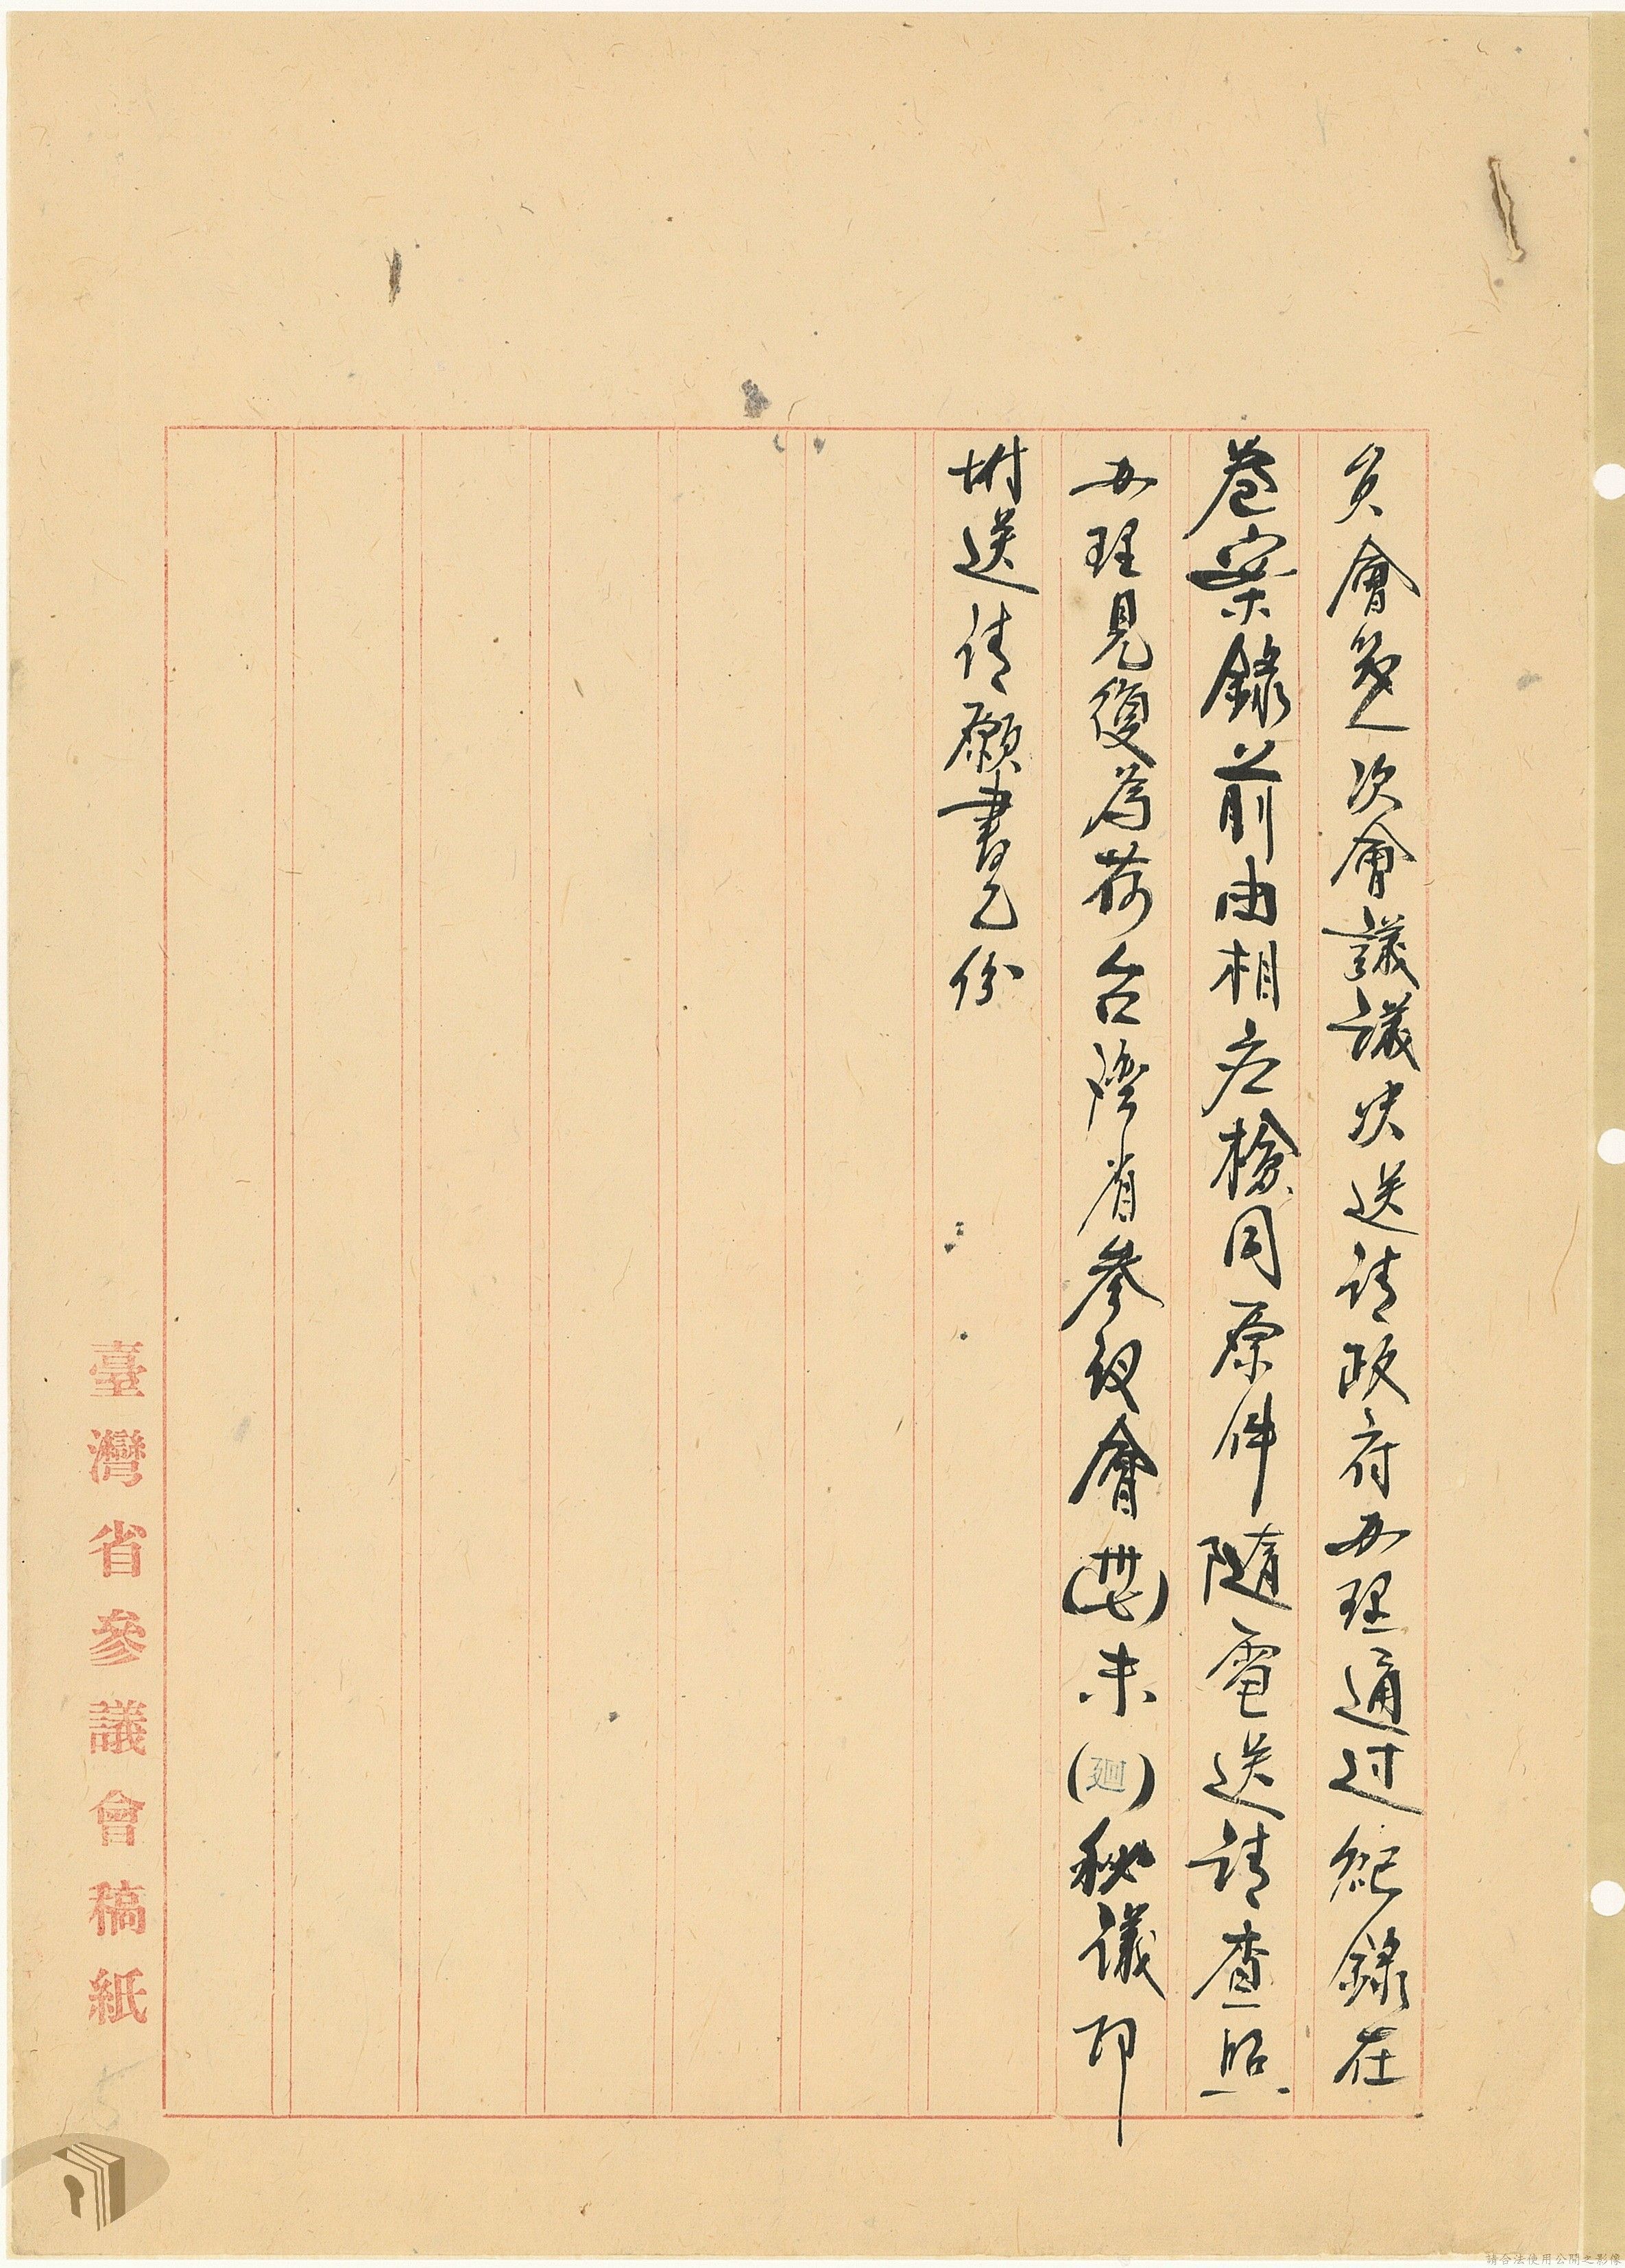 員會第八次會議議決送請政府办理通过紀錄在
卷案錄前由相应檢同原件隨電送請查照
办理見復為荷台灣省參议會(卅七)未(廻)秘議印
附送請願書乙份
臺灣省參議會稿紙
5
請合法使用公開之影像